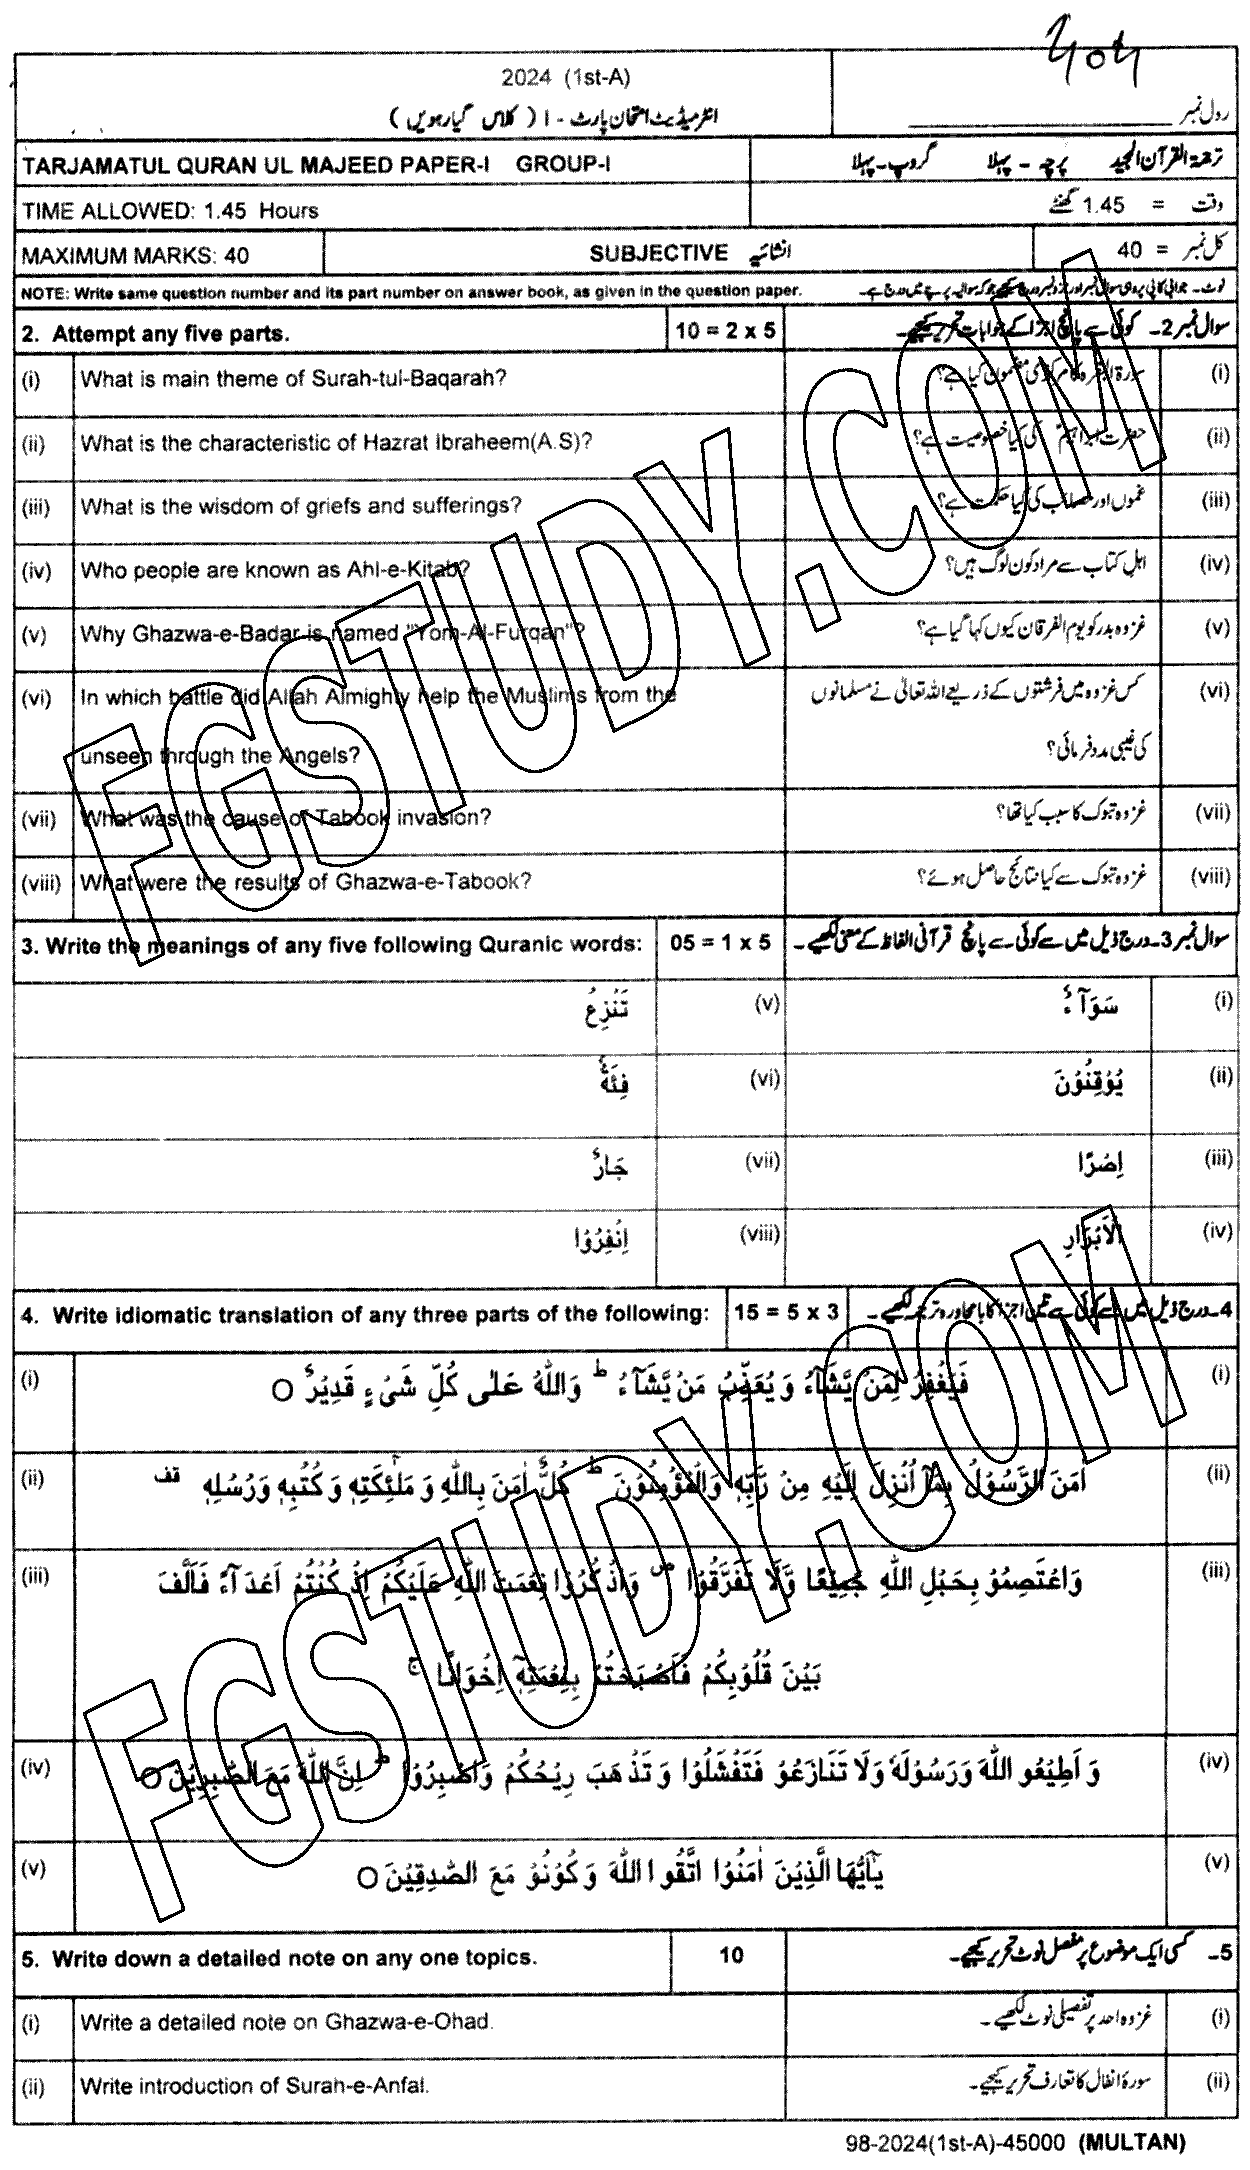 2024 (1st-A)
انٹرمیڈیٹ امتحان پارٹ - I ( کلاس گیارہویں )
رول نمبر
TARJAMATUL QURAN UL MAJEED PAPER-I GROUP-I
ترجمۃ القرآن المجید پرچہ - پہلا گروپ - پہلا
TIME ALLOWED: 1.45 Hours
وقت = 1.45 گھنٹے
MAXIMUM MARKS: 40
SUBJECTIVE انشائیہ
کل نمبر = 40
NOTE: Write same question number and its part number on answer book, as given in the question paper.
نوٹ۔ جوابی کاپی پر وہی سوال نمبر اور جزو نمبر درج کیجیے جو کہ سوالیہ پرچے میں درج ہے۔
2. Attempt any five parts.
10 = 2 x 5
سوال نمبر 2۔ کوئی سے پانچ اجزا کے جوابات تحریر کیجیے۔
(i) What is main theme of Surah-tul-Baqarah?
سورۃ البقرہ کا مرکزی مضمون کیا ہے؟ (i)
(ii) What is the characteristic of Hazrat Ibraheem(A.S)?
حضرت ابراہیمؑ کی کیا خصوصیت ہے؟ (ii)
(iii) What is the wisdom of griefs and sufferings?
غموں اور مصائب کی کیا حکمت ہے؟ (iii)
(iv) Who people are known as Ahl-e-Kitab?
اہلِ کتاب سے مراد کون لوگ ہیں؟ (iv)
(v) Why Ghazwa-e-Badar is named "Yom-Al-Furqan"?
غزوہ بدر کو یوم الفرقان کیوں کہا گیا ہے؟ (v)
(vi) In which battle did Allah Almighty help the Muslims from the
unseen through the Angels?
کس غزوہ میں فرشتوں کے ذریعے اللہ تعالیٰ نے مسلمانوں (vi)
کی غیبی مدد فرمائی؟
(vii) What was the cause of Tabook invasion?
غزوہ تبوک کا سبب کیا تھا؟ (vii)
(viii) What were the results of Ghazwa-e-Tabook?
غزوہ تبوک سے کیا نتائج حاصل ہوئے؟ (viii)
3. Write the meanings of any five following Quranic words:
05 = 1 x 5
سوال نمبر 3۔ درج ذیل میں سے کوئی سے پانچ قرآنی الفاظ کے معنی لکھیے۔
(i) سَوَآءٌ
(v) تَنْزِعُ
(ii) يُوْقِنُوْنَ
(vi) فِئَةٌ
(iii) اِصْرًا
(vii) جَارٌ
(iv) الْاَبْرَارِ
(viii) اِنْفِرُوْا
4. Write idiomatic translation of any three parts of the following:
15 = 5 x 3
4۔ درج ذیل میں سے کوئی سے تین اجزا کا بامحاورہ ترجمہ لکھیے۔
(i) فَيَغْفِرُ لِمَنْ يَّشَآءُ وَ يُعَذِّبُ مَنْ يَّشَآءُ ط وَاللّٰهُ عَلٰى كُلِّ شَىْءٍ قَدِيْرٌ O (i)
(ii) اٰمَنَ الرَّسُوْلُ بِمَآ اُنْزِلَ اِلَيْهِ مِنْ رَّبِّهٖ وَالْمُؤْمِنُوْنَ ط كُلٌّ اٰمَنَ بِاللّٰهِ وَ مَلٰٓئِكَتِهٖ وَ كُتُبِهٖ وَرُسُلِهٖ قف (ii)
(iii) وَاعْتَصِمُوْ بِحَبْلِ اللّٰهِ جَمِيْعًا وَّلَا تَفَرَّقُوْا ص وَاذْكُرُوْا نِعْمَتَ اللّٰهِ عَلَيْكُمْ اِذْ كُنْتُمْ اَعْدَآءً فَاَلَّفَ (iii)
بَيْنَ قُلُوْبِكُمْ فَاَصْبَحْتُمْ بِنِعْمَتِهٖٓ اِخْوَانًا ج
(iv) وَ اَطِيْعُو اللّٰهَ وَرَسُوْلَهٗ وَلَا تَنَازَعُوْ فَتَفْشَلُوْا وَ تَذْهَبَ رِيْحُكُمْ وَاصْبِرُوْا ط اِنَّ اللّٰهَ مَعَ الصّٰبِرِيْنَ O (iv)
(v) يٰٓاَيُّهَا الَّذِيْنَ اٰمَنُوْا اتَّقُوا اللّٰهَ وَ كُوْنُوْ مَعَ الصّٰدِقِيْنَ O (v)
5. Write down a detailed note on any one topics.
10
5۔ کسی ایک موضوع پر مفصل نوٹ تحریر کیجیے۔
(i) Write a detailed note on Ghazwa-e-Ohad.
غزوہ احد پر تفصیلی نوٹ لکھیے۔ (i)
(ii) Write introduction of Surah-e-Anfal.
سورۃ انفال کا تعارف تحریر کیجیے۔ (ii)
98-2024(1st-A)-45000 (MULTAN)
FGSTUDY.COM
FGSTUDY.COM